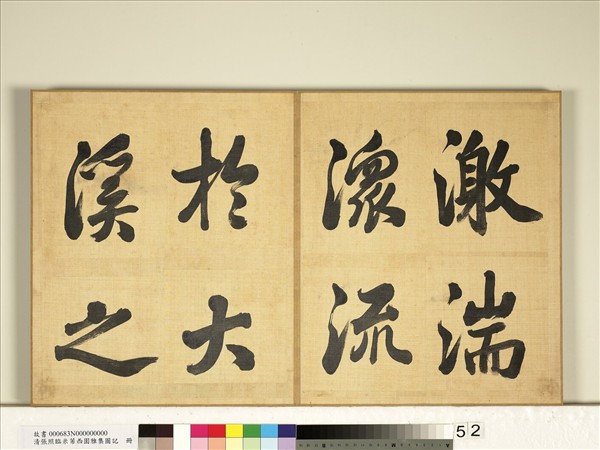 激湍
潨流
於大
溪之
故書000683N000000000
清張照臨米芾西園雅集圖記 冊
52